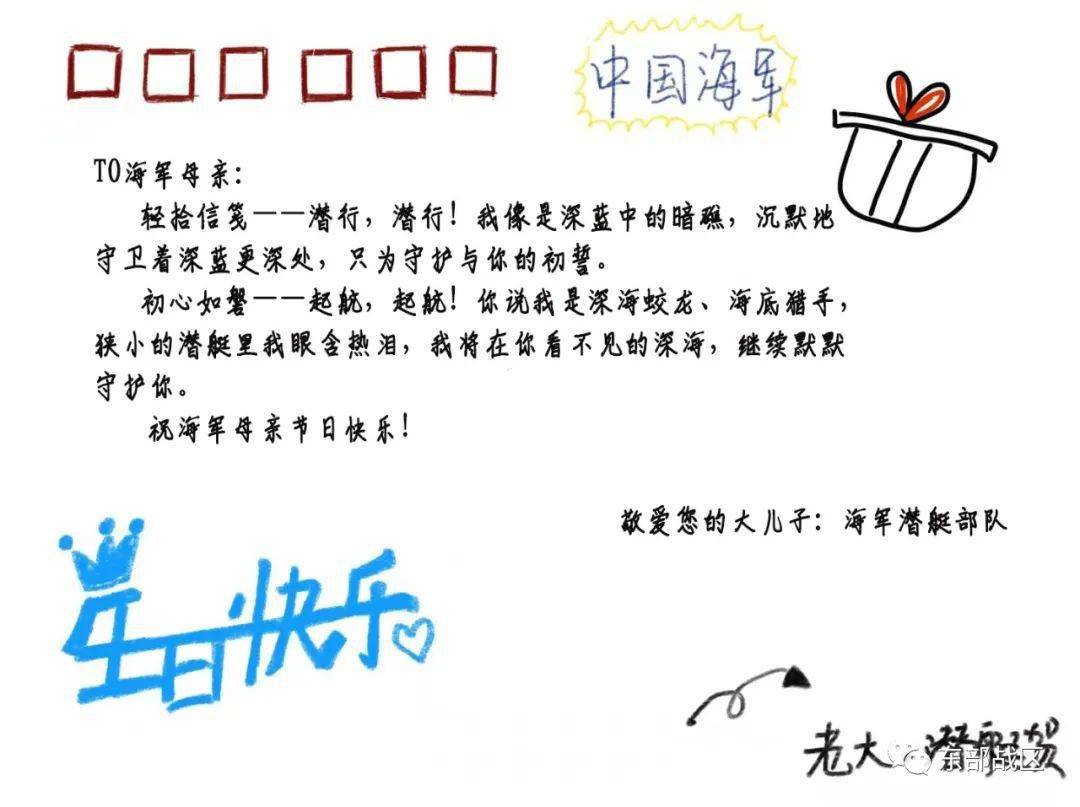 中国海军
TO海军母亲：
轻拾信笺——潜行，潜行！我像是深蓝中的暗礁，沉默地
守卫着深蓝更深处，只为守护与你的初誓。
初心如磐——起航，起航！你说我是深海蛟龙、海底猎手，
狭小的潜艇里我眼含热泪，我将在你看不见的深海，继续默默
守护你。
祝海军母亲节日快乐！
敬爱您的大儿子：海军潜艇部队
生日快乐
老大
东部战区